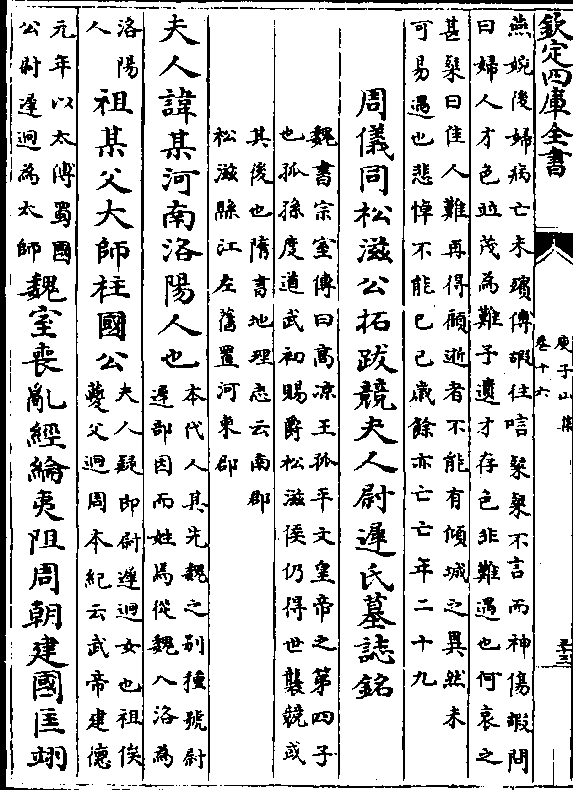 欽定四庫全書
庾子山集
卷十六
燕婉後婦病亡未殯傅嘏往唁粲粲不言而神傷嘏問
曰婦人才色並茂為難子遺才存色非難遇也何哀之
甚粲曰佳人難再得顧逝者不能有傾城之異然未
可易遇也悲悼不能已已歲餘亦亡亡年二十九
周儀同松滋公拓跋競夫人尉遲氏墓誌銘
魏書宗室傳曰高涼王孤平文皇帝之第四子
也孤孫度道武初賜爵松滋侯仍得世襲競或
其後也隋書地理志云南郡
松滋縣江左舊置河東郡
夫人諱某河南洛陽人也
本代人其先魏之别種號尉
遲部因而姓焉從魏入洛為
洛陽
人
祖某父大師柱國公
夫人疑即尉遲迥女也祖俟
夔父迥周本紀云武帝建德
元年以太傅蜀國
公尉遲迥為太師
魏室喪亂經綸夷阻周朝建國匡翊